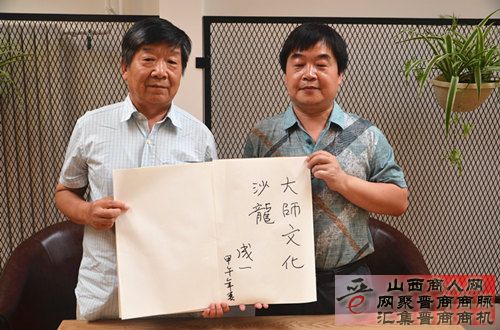 大師文化
沙龍
成一
甲午年
晋
山西商人网
网聚晋商商脉
汇集晋商商机